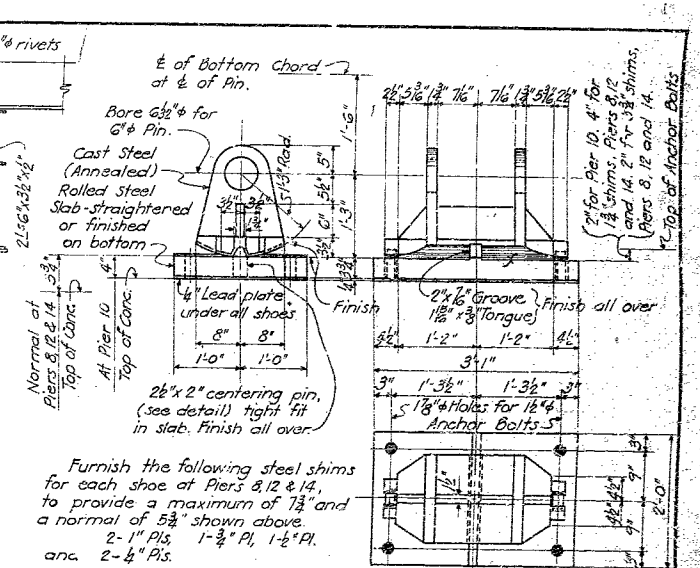 "φ rivets
℄ of Bottom Chord
at ℄ of Pin.
Bore 6 1/32"φ for
6"φ Pin.
Cast Steel
(Annealed)
Rolled Steel
Slab-straightened
or finished
on bottom
5 1/2" 5"
1'-6"
1'-3"
6"
3 1/2"
1'-3" Rad.
Finish
1/4" Lead plate
under all shoes
8" 8"
1'-0" 1'-0"
Normal at
Piers 8,12 & 14
5 3/4"
Top of Conc.
At Pier 10
4"
Top of Conc.
2 1/2" x 2" centering pin,
(see detail) tight fit
in slab. Finish all over.
2 1/2" 5 3/16" 1 3/4" 7 1/16" 7 1/16" 1 3/4" 5 3/16" 2 1/2"
2" for Pier 10. 4" for
1 3/4" shims, Piers 8,12
and 14. 2" for 3 3/4" shims,
Piers 8, 12 and 14.
Top of Anchor Bolts
2" x 7/16" Groove
1 15/16" x 3/8" Tongue
Finish all over
4 1/2" 1'-2" 1'-2" 4 1/2"
3'-1"
3" 1'-3 1/2" 1'-3 1/2" 3"
1 7/8"φ Holes for 1 1/2"φ
Anchor Bolts
1 1/2"
3"
9"
4 1/2" 4 1/2"
9"
3"
2'-0"
Furnish the following steel shims
for each shoe at Piers 8, 12 & 14,
to provide a maximum of 7 3/4" and
a normal of 5 3/4" shown above.
2- 1" Pls, 1- 3/4" Pl, 1- 1/2" Pl.
and 2- 1/4" Pls.